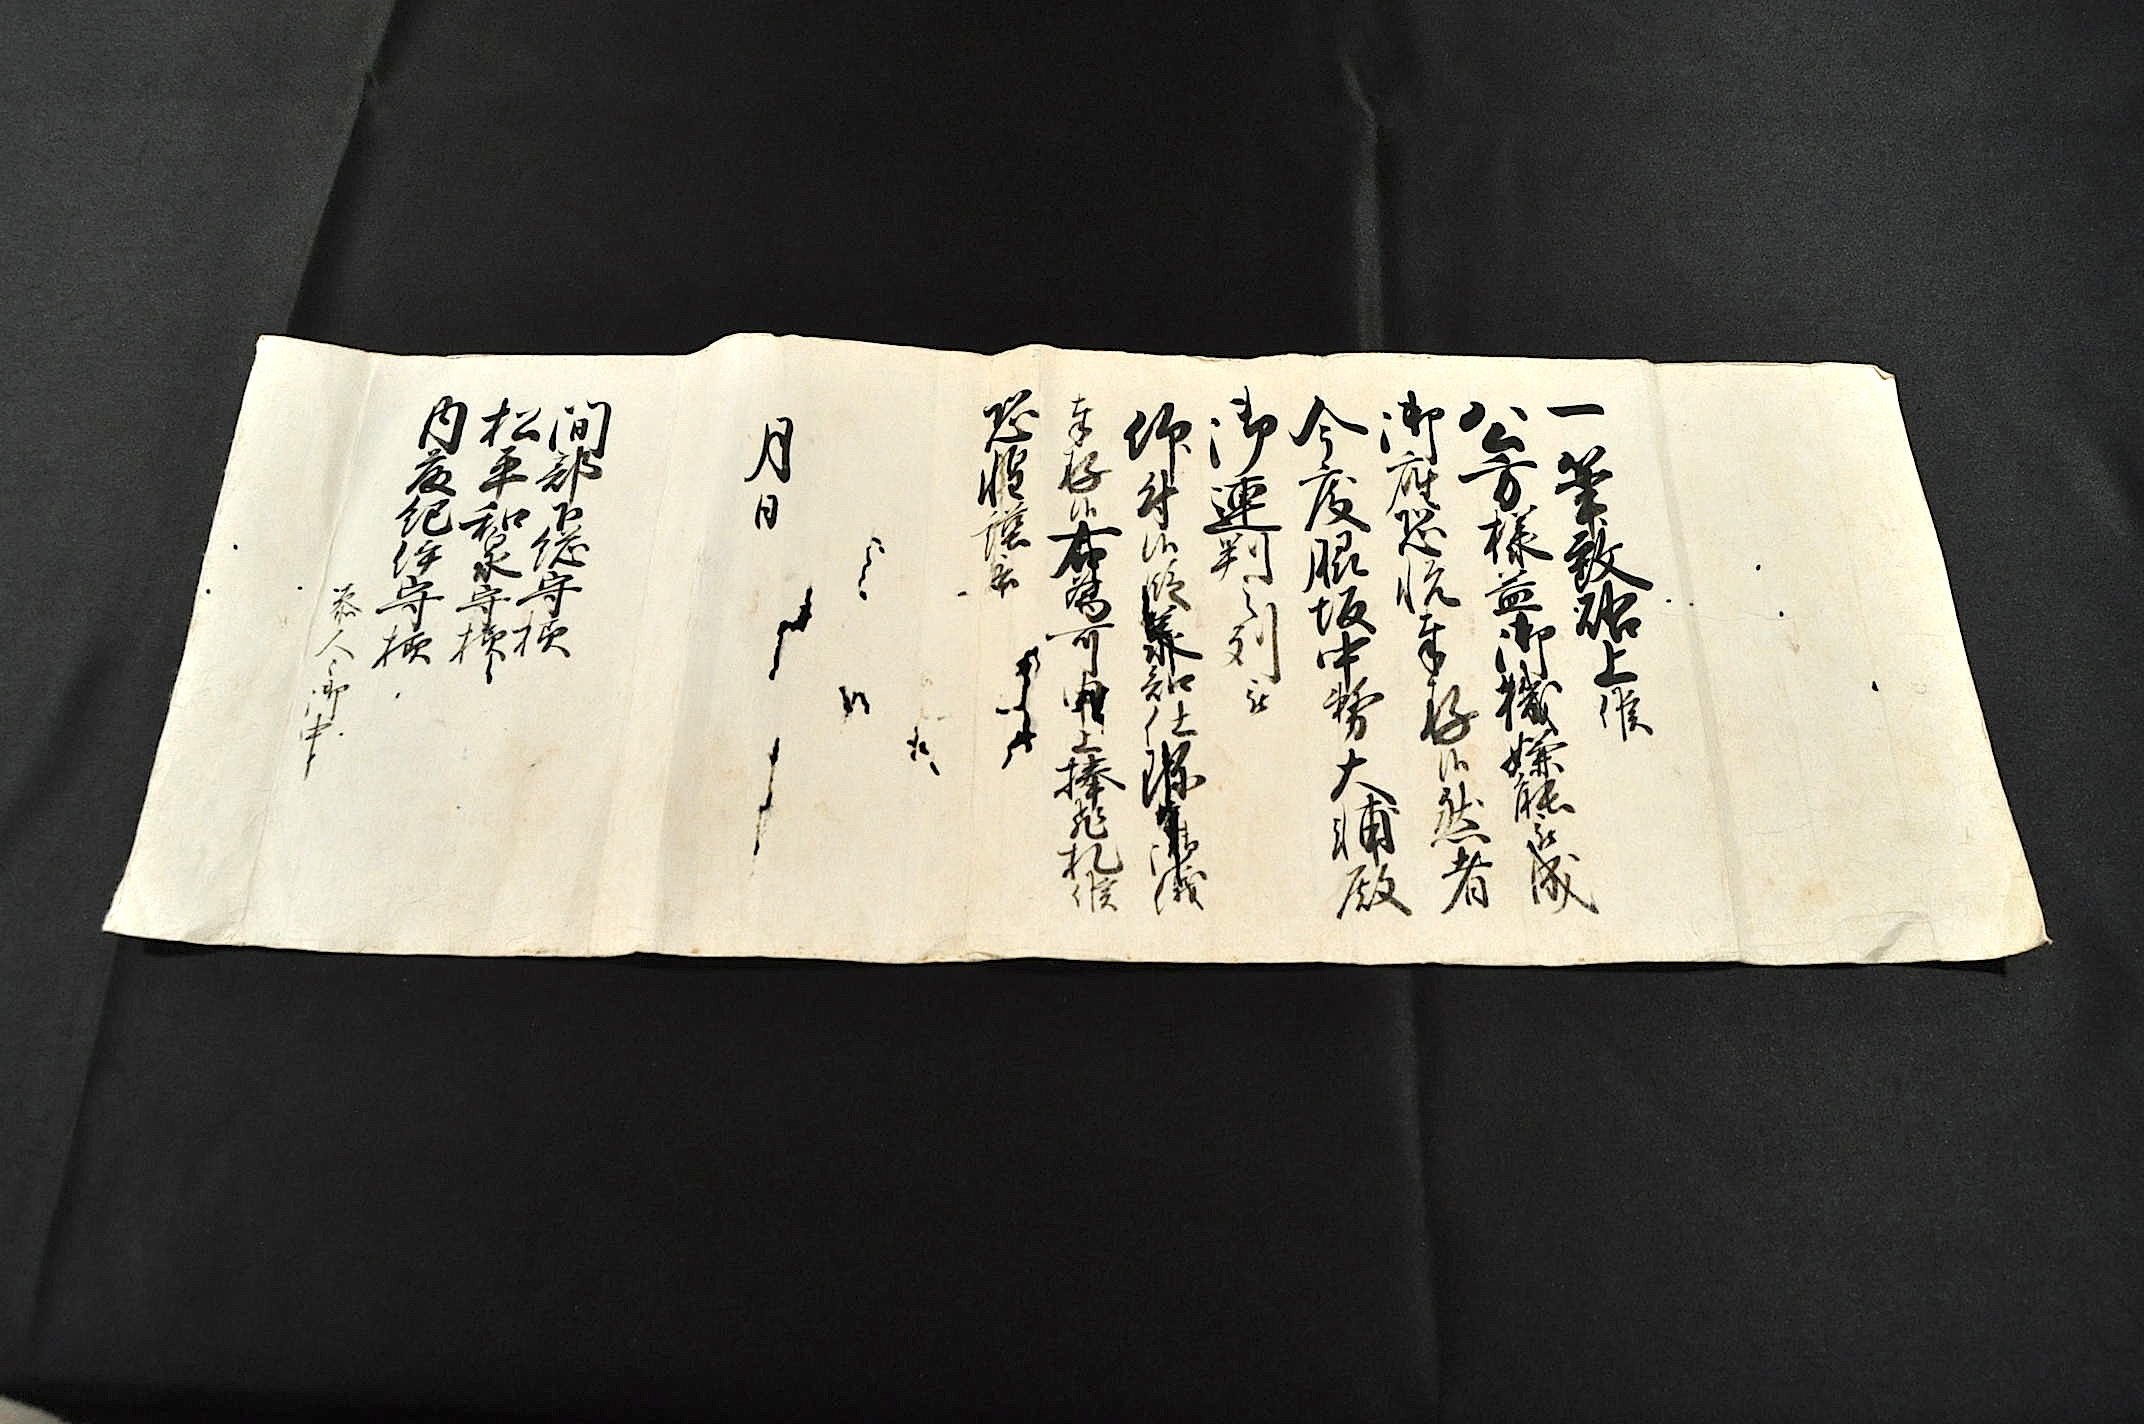 一筆致啓上候
公方様益御機嫌能被成
御座恐悦奉存候然者
今度脇坂中務大輔殿
御連判之列被
仰付候段承知仕
奉存候右為可申上捧愚札候
恐惶謹言
月日
間部下総守様
松平和泉守様
内藤紀伊守様
参人々御中